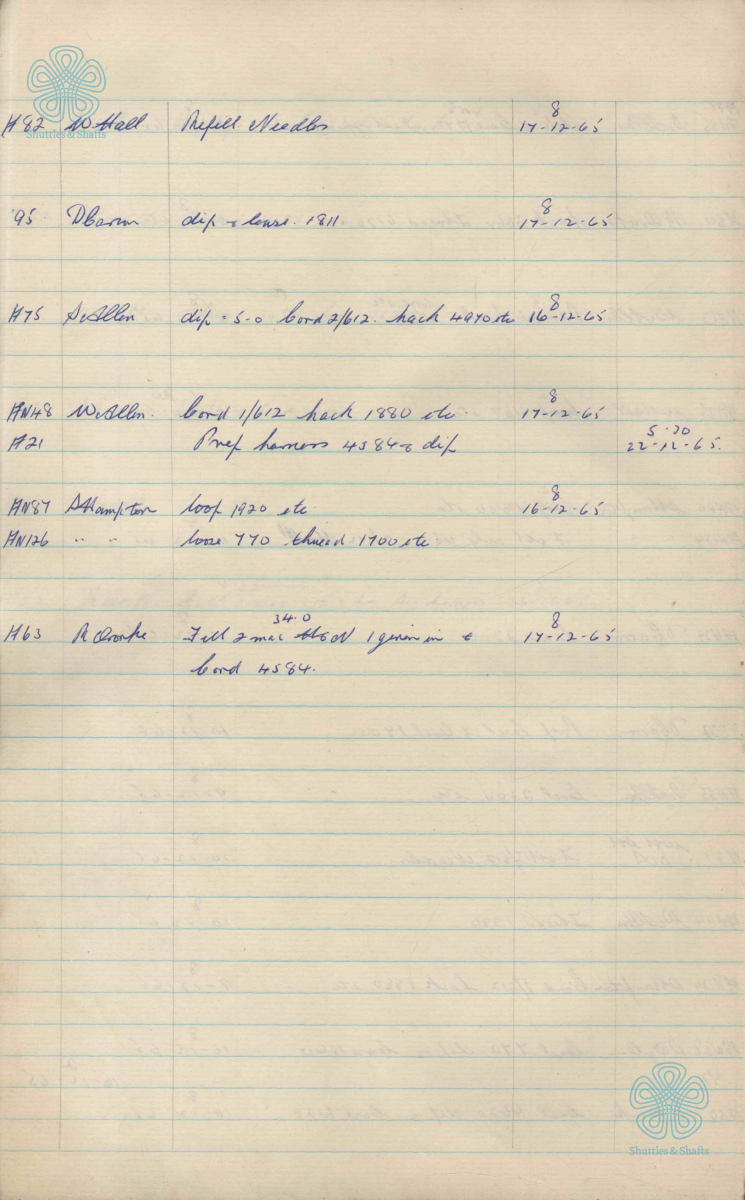 Shuttles & Shafts
8
H82 W Hall Refill Needles 17-12-65
8
'95 D Caron dip & loose. 1811 17-12-65
8
H75 S Allen dip = 5-0 Cord 2/612. hack 4970 etc 16-12-65
8
HN48 W Allen. Cord 1/612 hack 1880 etc 17-12-65
5.30
H21 Prep harness 4584 & dip 22-12-65.
8
HN87 S Hampton loop 1920 etc 16-12-65
HN126 " " loose 770 thread 1700 etc
34.0 8
H63 R Fill 2 mac 1 given in & 17-12-65
Cord 4584.
Shuttles & Shafts